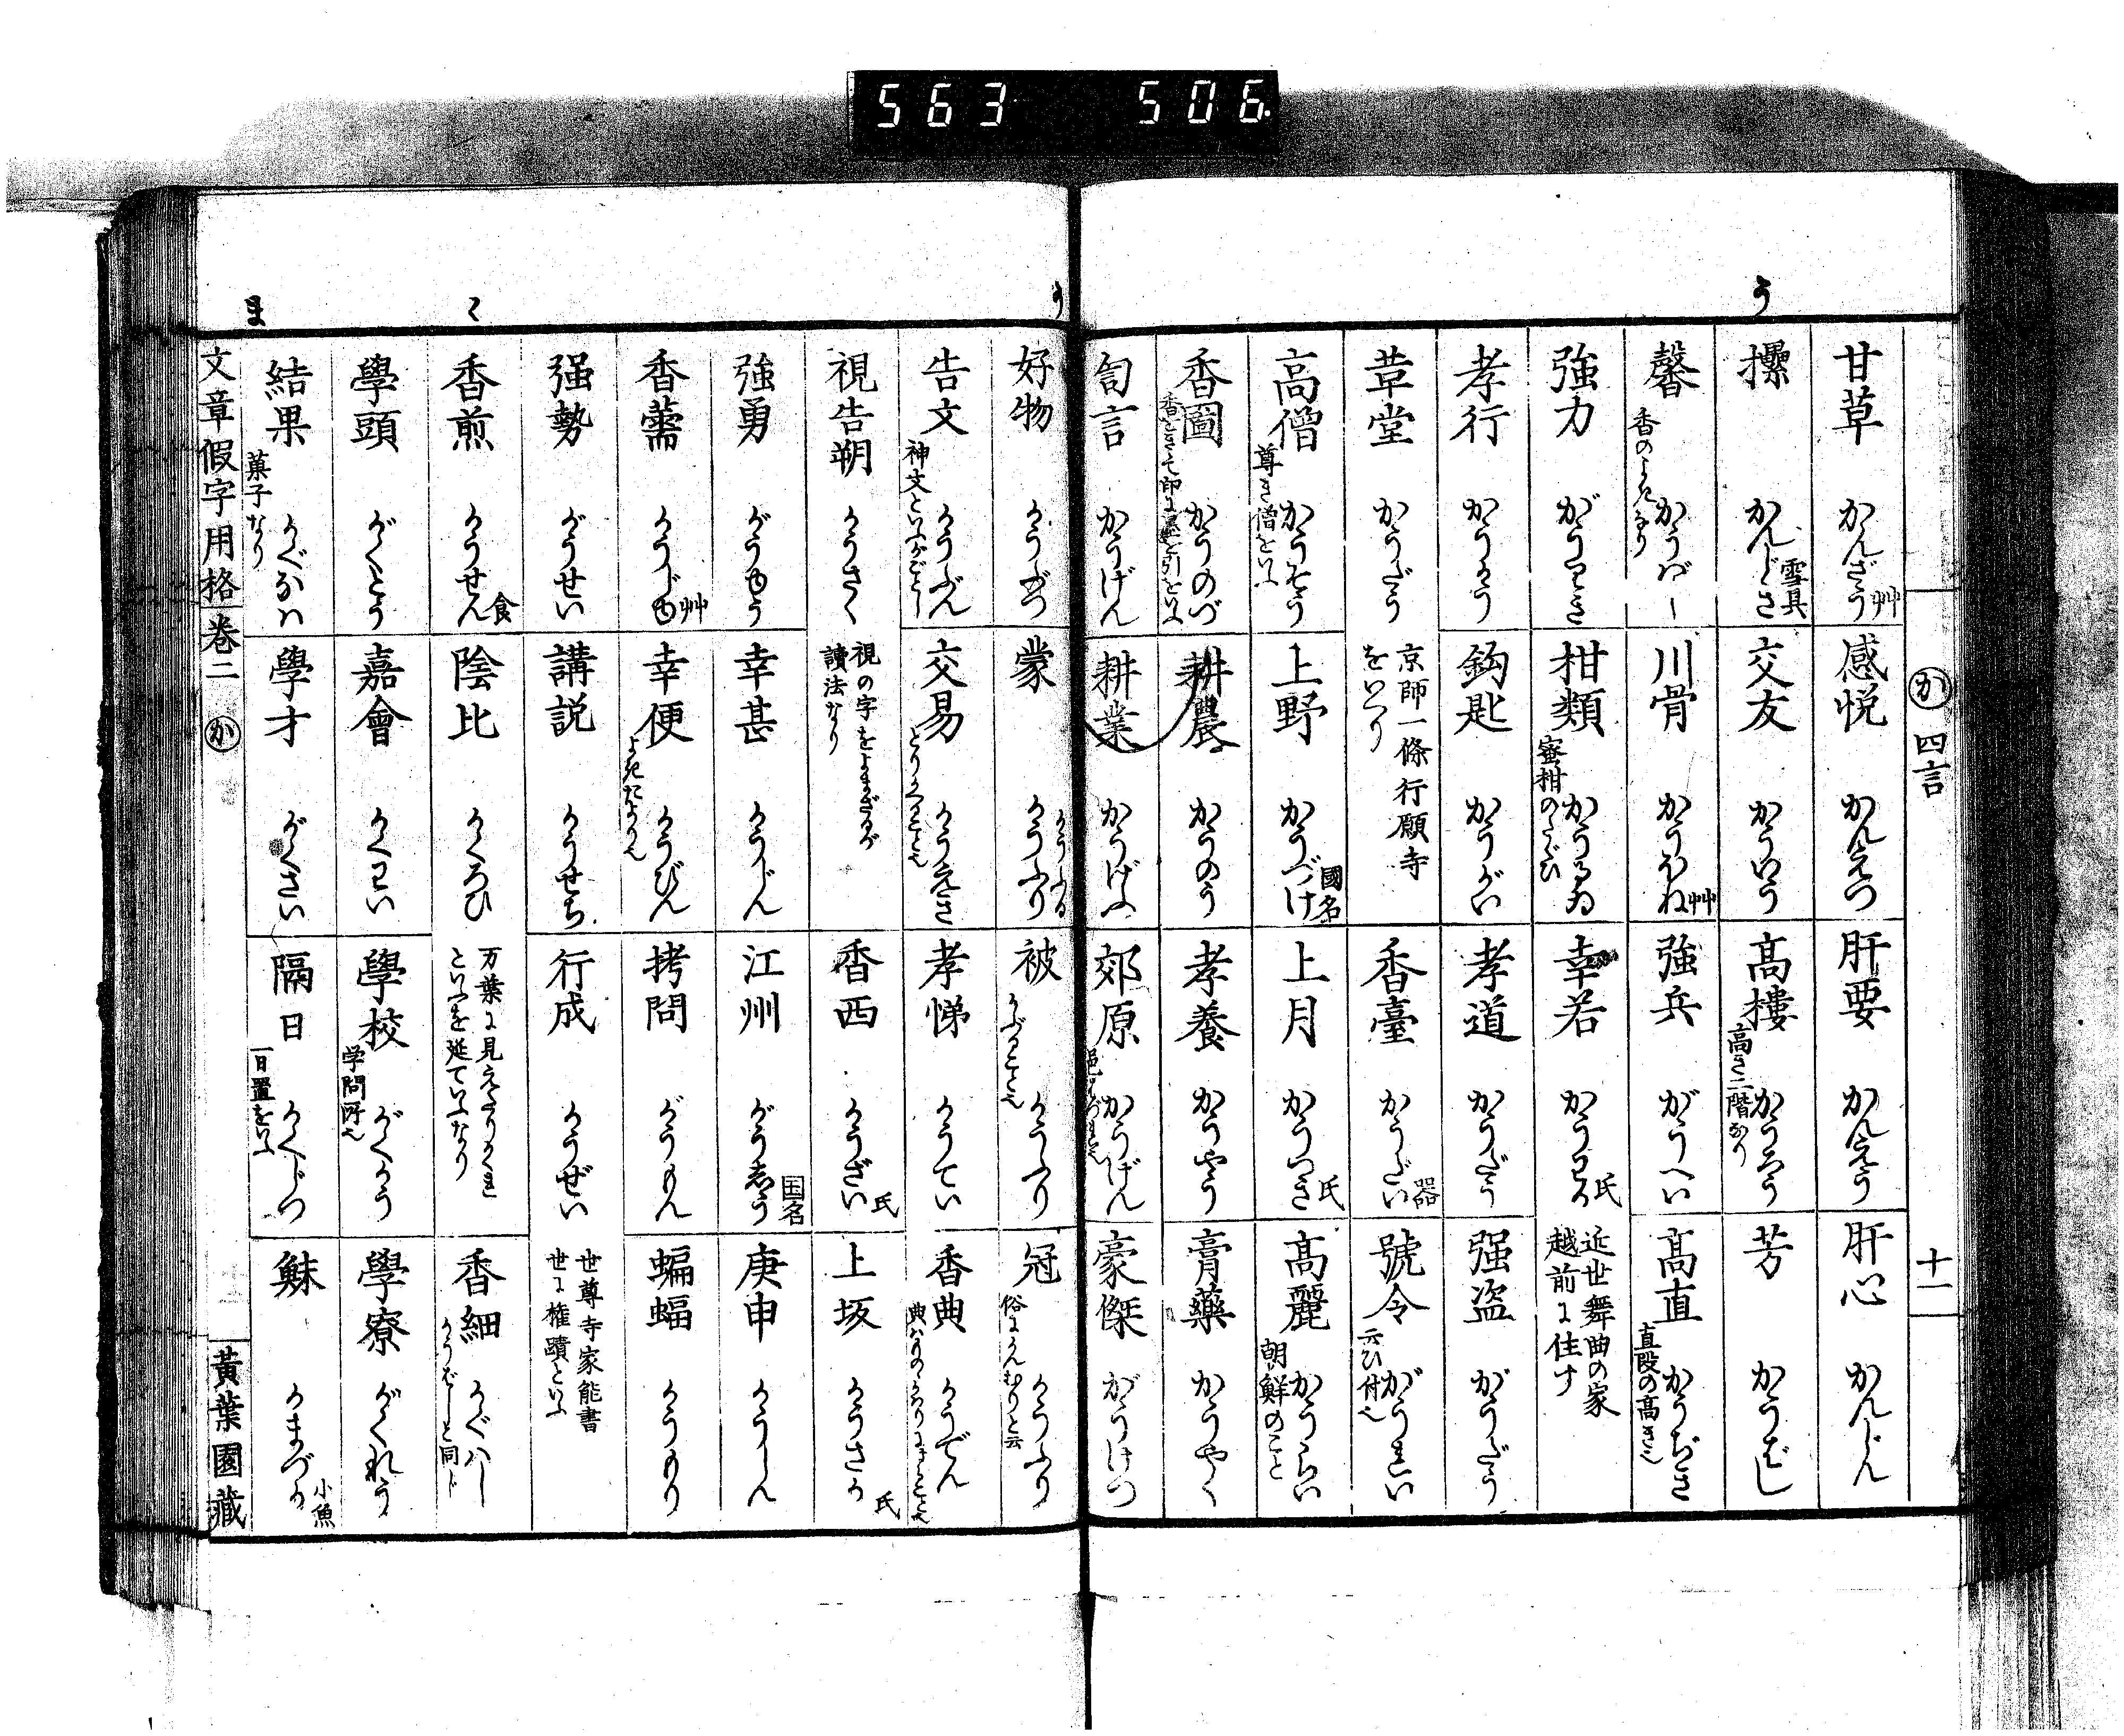 563 506
う
か 四言 十一
甘草 かんざう 艸
感悦 かんえつ
肝要 かんえう
肝心 かんじん
㩧 かんじき 雪具
交友 かういう
高樓 かうろう 高き二階なり
芳 かうばし
馨 かうばし 香のよきなり
川骨 かうほね 艸
強兵 がうへい
高直 かうぢき 直段の高き也
強力 がうりき
柑類 かうるゐ 蜜柑のたぐひ
幸若 かうわか 氏 近世舞曲の家越前に住す
孝行 かうかう
鈎匙 かうがい
孝道 かうだう
强盗 がうだう
革堂 かうだう 京師一條行願寺をいへり
香臺 かうだい 器
號令 がうれい 云ひ付也
高僧 かうそう 尊き僧をいふ
上野 かうづけ 國名
上月 かうつき 氏
高麗 かうらい 朝鮮のこと
香圖 かうのづ
耕農 かうのう
孝養 かうやう
膏藥 かうやく
訇言 かうげん
耕業 かうげふ
郊原 かうげん
豪傑 がうけつ
好物 かうぶつ
蒙 かうふり かうふる
被 かうふり かぶること也
冠 かうふり 俗にかんむりと云
告文 かうぶん 神文といふがごとし
交易 かうえき とりかへること也
孝悌 かうてい
香典 かうでん
視告朔 かうさく 視の字をよまざるが讀法なり
香西 かうざい 氏
上坂 かうさか 氏
強勇 がうゆう
幸甚 かうじん
江州 がうしう 国名
庚申 かうしん
香薷 かうじゆ 艸
幸便 かうびん よきたより也
拷問 がうもん
蝙蝠 かうもり
强勢 がうせい
講説 かうせち
行成 かうぜい 世尊寺家能書 世に権蹟といふ
く
香煎 かうせん 食
陰比 かくろひ 万葉に見えたりかくれといふを延ていふなり
香細 かぐハし かうばしと同じ
學頭 がくとう
嘉會 かくわい
學校 がくかう 学問所也
學寮 がくれう
ま
結果 かぐなハ 菓子なり
學才 がくさい
隔日 かくじつ 一日置をいふ
鮇 かまづか 小魚
文章假字用格 巻二 か 黃葉園藏